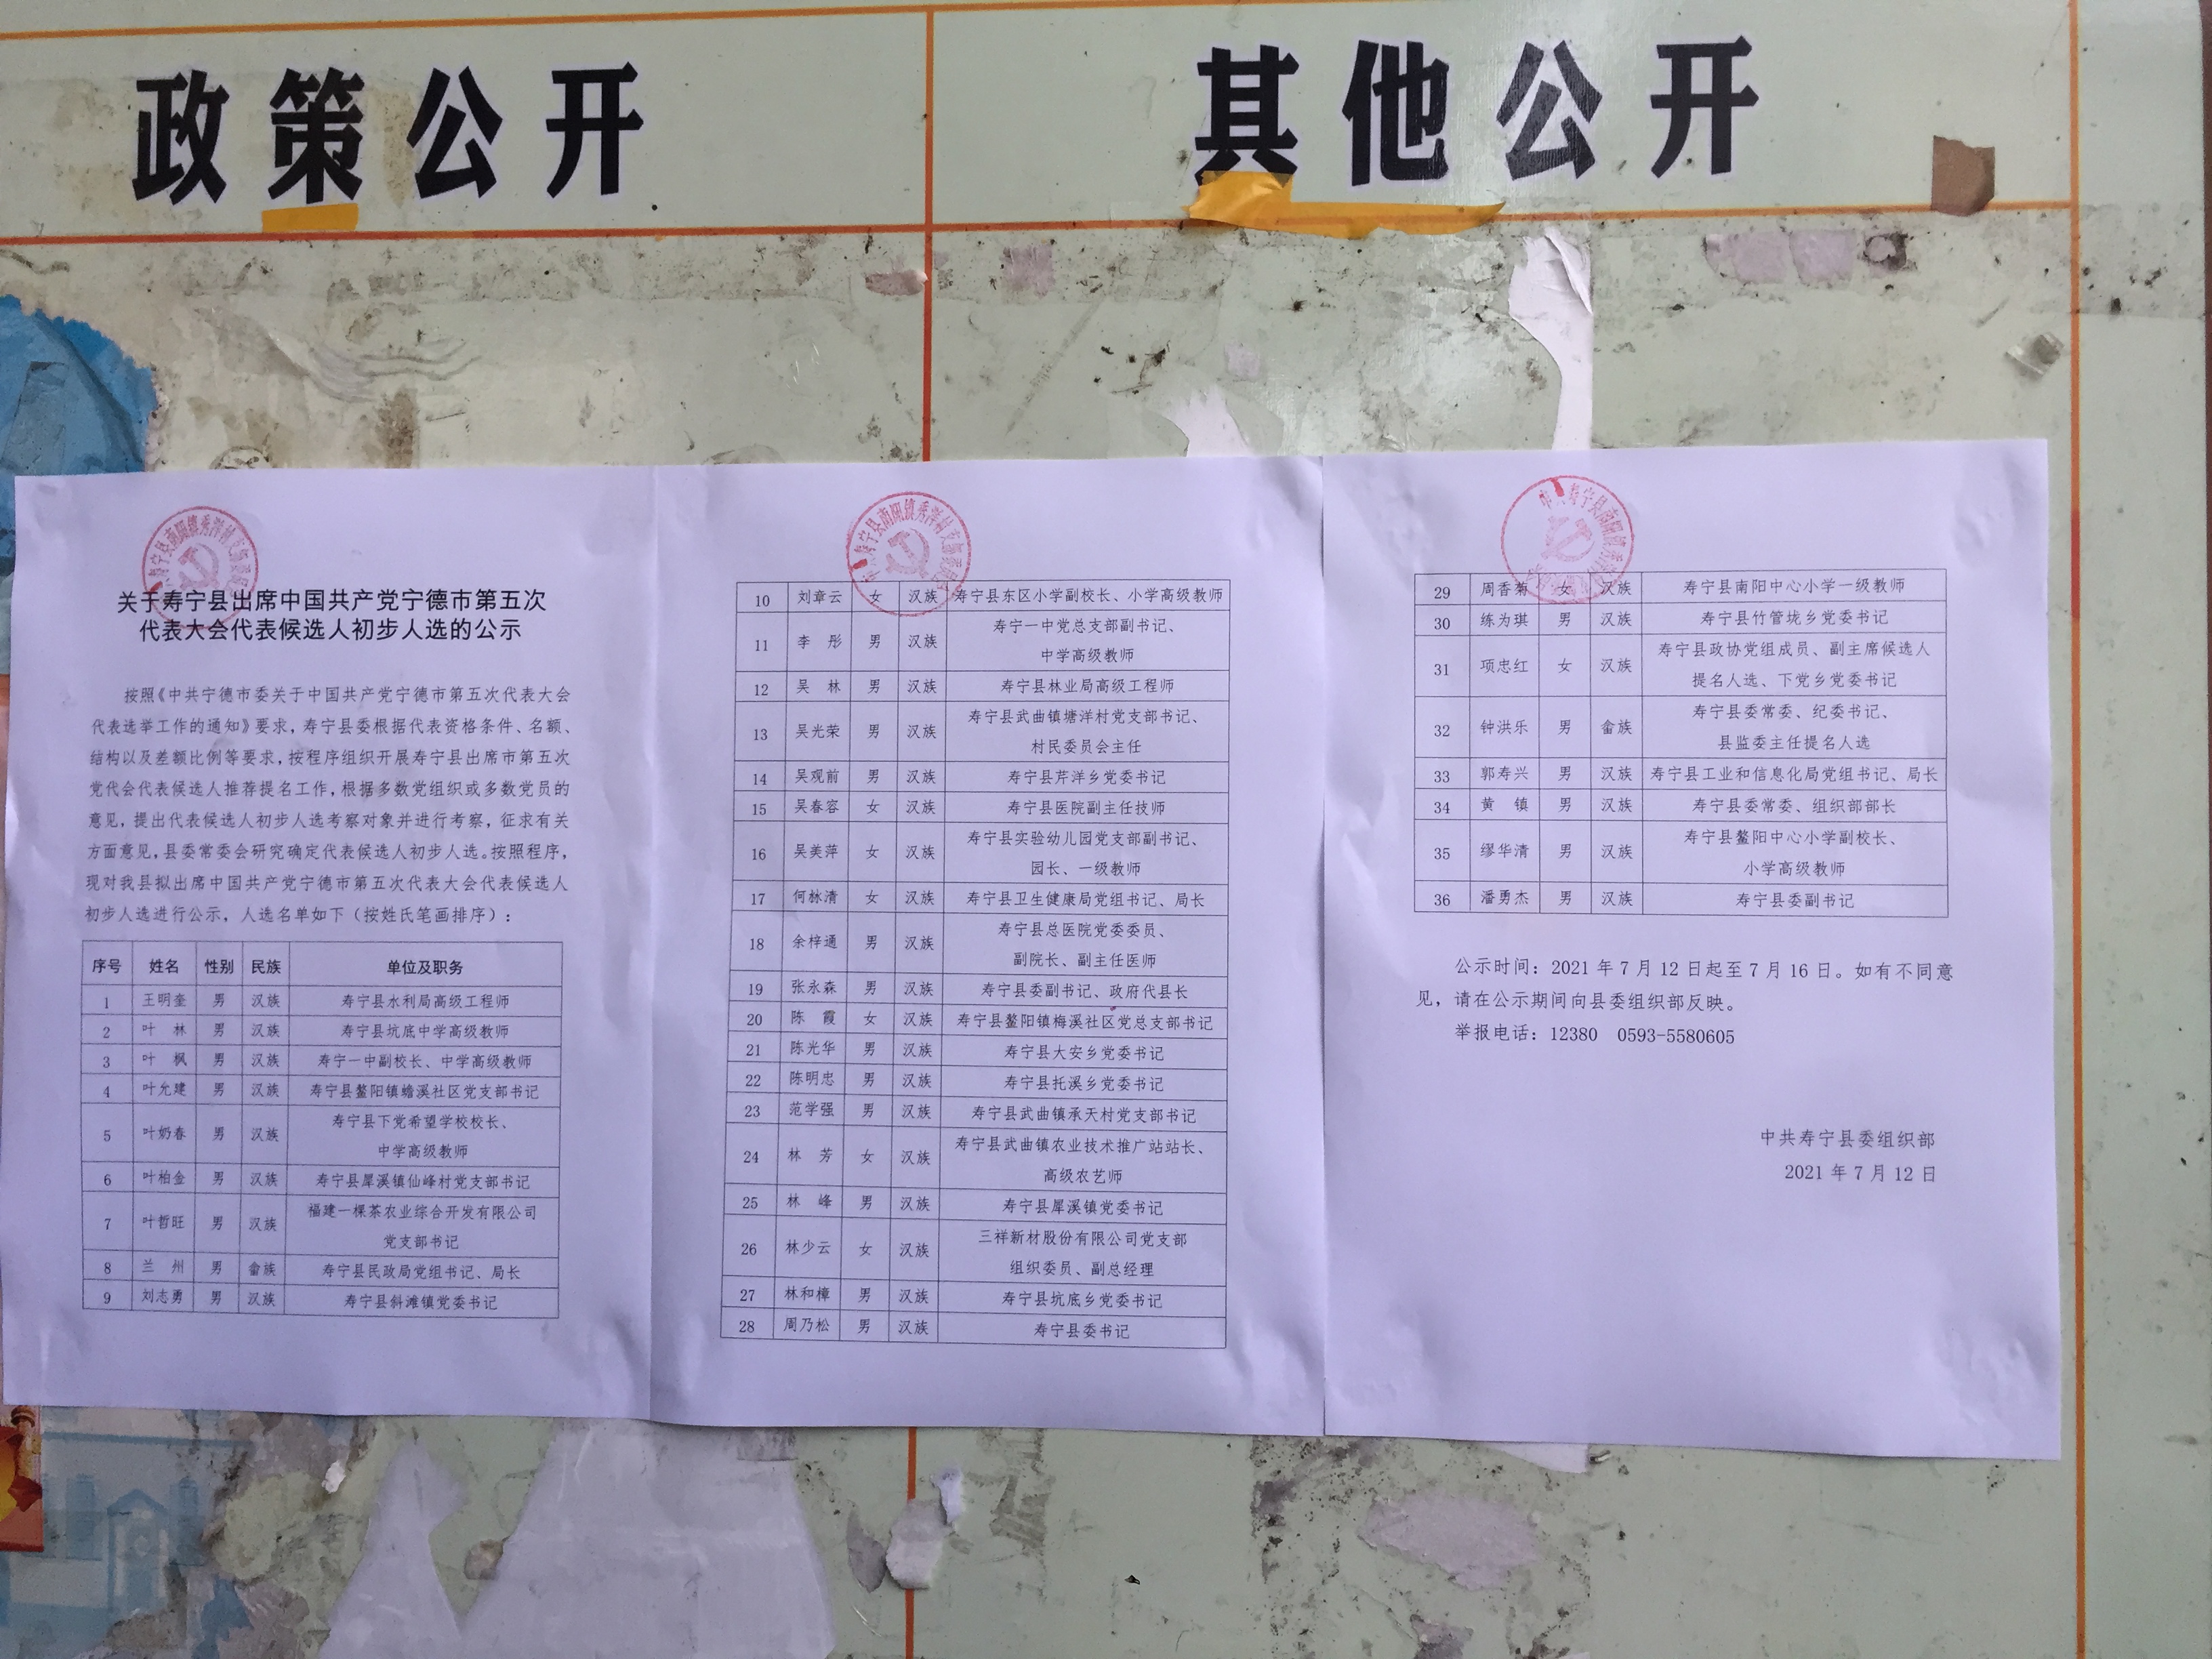 政策公开
其他公开
关于寿宁县出席中国共产党宁德市第五次
代表大会代表候选人初步人选的公示
按照《中共宁德市委关于中国共产党宁德市第五次代表大会
代表选举工作的通知》要求，寿宁县委根据代表资格条件、名额、
结构以及差额比例等要求，按程序组织开展寿宁县出席市第五次
党代会代表候选人推荐提名工作，根据多数党组织或多数党员的
意见，提出代表候选人初步人选考察对象并进行考察，征求有关
方面意见，县委常委会研究确定代表候选人初步人选。按照程序，
现对我县拟出席中国共产党宁德市第五次代表大会代表候选人
初步人选进行公示，人选名单如下（按姓氏笔画排序）：
序号 姓名 性别 民族 单位及职务
1 王明奎 男 汉族 寿宁县水利局高级工程师
2 叶 林 男 汉族 寿宁县坑底中学高级教师
3 叶 枫 男 汉族 寿宁一中副校长、中学高级教师
4 叶允建 男 汉族 寿宁县鳌阳镇蟾溪社区党支部书记
5 叶奶春 男 汉族 寿宁县下党希望学校校长、
中学高级教师
6 叶柏金 男 汉族 寿宁县犀溪镇仙峰村党支部书记
7 叶哲旺 男 汉族 福建一棵茶农业综合开发有限公司
党支部书记
8 兰 州 男 畲族 寿宁县民政局党组书记、局长
9 刘志勇 男 汉族 寿宁县斜滩镇党委书记
10 刘章云 女 汉族 寿宁县东区小学副校长、小学高级教师
11 李 彤 男 汉族 寿宁一中党总支部副书记、
中学高级教师
12 吴 林 男 汉族 寿宁县林业局高级工程师
13 吴光荣 男 汉族 寿宁县武曲镇塘洋村党支部书记、
村民委员会主任
14 吴观前 男 汉族 寿宁县芹洋乡党委书记
15 吴春容 女 汉族 寿宁县医院副主任技师
16 吴美萍 女 汉族 寿宁县实验幼儿园党支部副书记、
园长、一级教师
17 何脉清 女 汉族 寿宁县卫生健康局党组书记、局长
18 余梓通 男 汉族 寿宁县总医院党委委员、
副院长、副主任医师
19 张永森 男 汉族 寿宁县委副书记、政府代县长
20 陈 霞 女 汉族 寿宁县鳌阳镇梅溪社区党总支部书记
21 陈光华 男 汉族 寿宁县大安乡党委书记
22 陈明忠 男 汉族 寿宁县托溪乡党委书记
23 范学强 男 汉族 寿宁县武曲镇承天村党支部书记
24 林 芳 女 汉族 寿宁县武曲镇农业技术推广站站长、
高级农艺师
25 林 峰 男 汉族 寿宁县犀溪镇党委书记
26 林少云 女 汉族 三祥新材股份有限公司党支部
组织委员、副总经理
27 林和樟 男 汉族 寿宁县坑底乡党委书记
28 周乃松 男 汉族 寿宁县委书记
29 周香菊 女 汉族 寿宁县南阳中心小学一级教师
30 练为琪 男 汉族 寿宁县竹管垅乡党委书记
31 项忠红 女 汉族 寿宁县政协党组成员、副主席候选人
提名人选、下党乡党委书记
32 钟洪乐 男 畲族 寿宁县委常委、纪委书记、
县监委主任提名人选
33 郭寿兴 男 汉族 寿宁县工业和信息化局党组书记、局长
34 黄 镇 男 汉族 寿宁县委常委、组织部部长
35 缪华清 男 汉族 寿宁县鳌阳中心小学副校长、
小学高级教师
36 潘勇杰 男 汉族 寿宁县委副书记
公示时间：2021 年 7 月 12 日起至 7 月 16 日。如有不同意
见，请在公示期间向县委组织部反映。
举报电话：12380 0593-5580605
中共寿宁县委组织部
2021 年 7 月 12 日